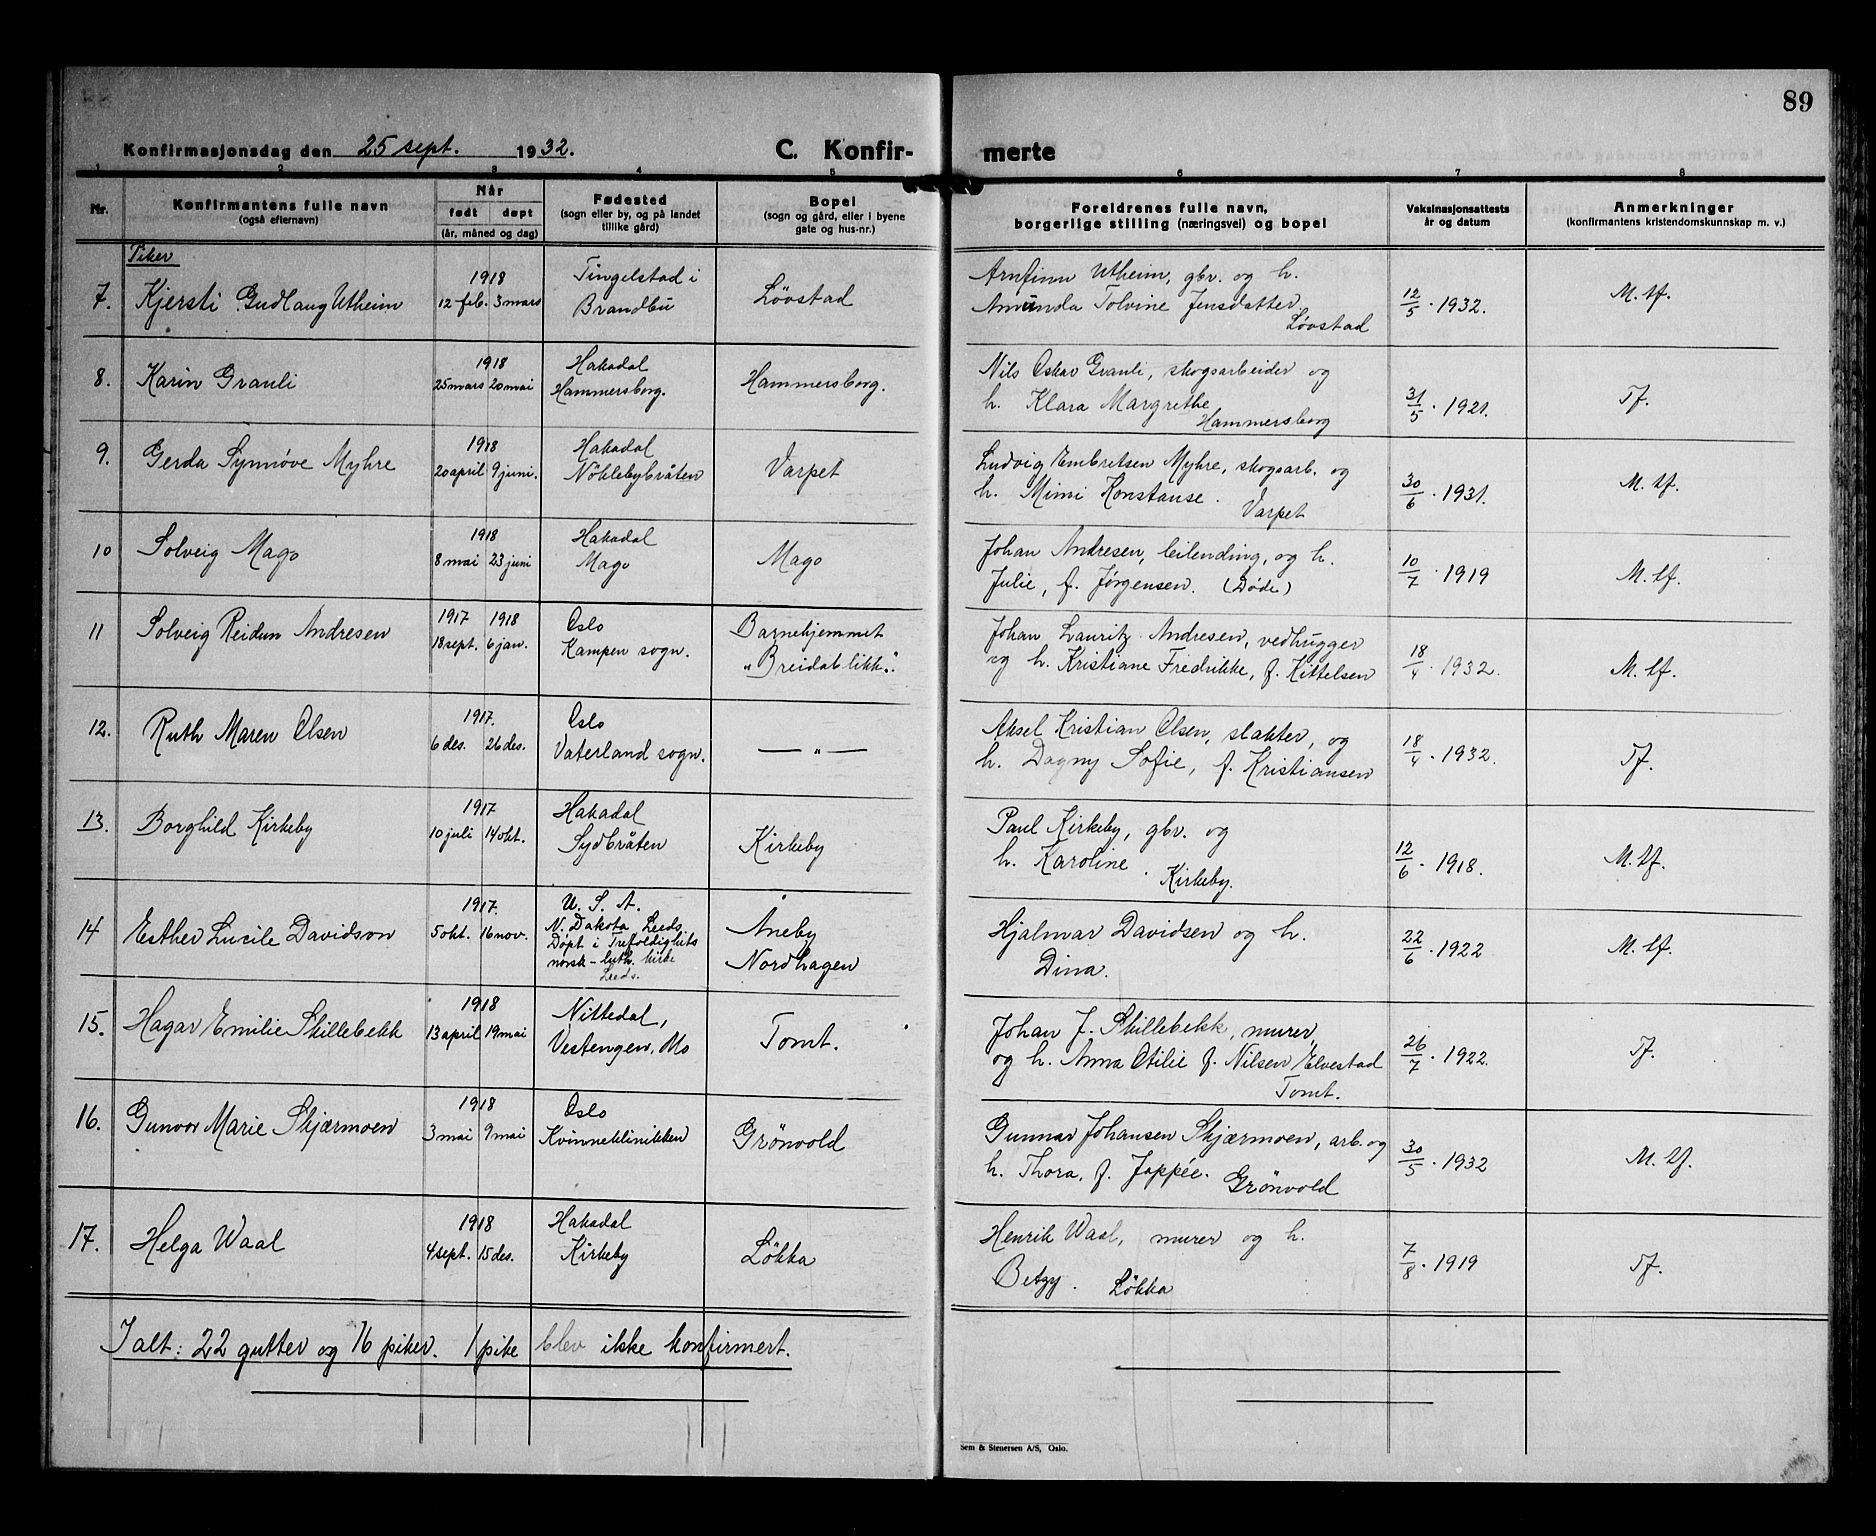 89
Konfirmasjonsdag den 25 sept. 1932. C. Konfir- merte
1 2 3 4 5 6 7 8
Nr.
Konfirmantens fulle navn
(også efternavn)
Når
født døpt
(år, måned og dag)
Fødested
(sogn eller by, og på landet
tillike gård)
Bopel
(sogn og gård, eller i byene
gate og hus-nr.)
Foreldrenes fulle navn,
borgerlige stilling (næringsvei) og bopel
Vaksinasjonsattests
år og datum
Anmerkninger
(konfirmantens kristendomskunnskap m. v.)
Piker
7. Kjersti Gudlaug Utheim
1918
12 feb. 3 mars
Tingelstad i
Brandbu
Løvstad
Arnfinn Utheim, gbr. og h.
Amunda Tolvine Jensdatter
Løvstad
12/5 . 1932.
M. tf.
8. Karin Grauli
1918
25 mars 20 mai
Hakadal
Hammersborg.
Hammersborg.
Nils Oskar Grauli, skogsarbeider og
h. Klara Margrethe
Hammersborg
31/5 . 1921.
Tf.
9. Gerda Synnøve Myhre
1918
20 april 9 juni.
Hakadal
Nöklebybråten
Varpet
Ludvig Embretsen Myhre, skogsarb. og
h. Mimi Konstanse.
Varpet
30/6 . 1931.
M. tf.
10 Solveig Mago
1918
8 mai 23 juni
Hakadal
Mago
Mago
Johan Andresen, leilending, og h.
Julie, f. Jørgensen. (Døde)
10/7 . 1919
M. tf.
11 Solveig Reidun Andresen
1917 1918
18 sept. 6 jan.
Oslo
Kampen sogn.
Barnehjemmet
"Breidablikk".
Johan Lauritz Andresen, vedhugger
og h. Kristiane Fredrikke, f. Kittelsen
18/4 . 1932.
M. tf.
12. Ruth Maren Olsen
1917.
6 des. 26 des.
Oslo
Vaterland sogn.
— " —
Aksel Kristian Olsen, slakter, og
h. Dagny Sofie, f. Kristiansen
18/4 . 1932.
Tf.
13. Borghild Kirkeby
1917
10 juli 14 okt.
Hakadal
Sydbråten
Kirkeby
Paul Kirkeby, gbr. og
h. Karoline.
Kirkeby.
12/6 . 1918.
M. tf.
14 Esther Lucile Davidson
1917.
5 okt. 16 nov.
U. S. A.
N. Dakota, Leeds
Døpt i Trefoldighets
norsk-luth. kirke
Leeds.
Åneby
Nordhagen
Hjalmar Davidsen og h.
Dina.
22/6 . 1922
M. tf.
15. Hagar Emilie Skillebekk
1918
13 april 19 mai
Nittedal,
Vestengen, Mo
Tomt.
Johan J. Skillebekk, murer,
og h. Anna Otilie f. Nilsen Elvestad
Tomt.
26/7 . 1922.
Tf.
16. Gunvor Marie Skjærmoen
1918
3 mai 9 mai
Oslo
Kvinneklinikken
Grönvold
Gunnar Johansen Skjærmoen, arb. og
h. Thora, f. Joppée.
Grönvold
30/5 . 1932
M. tf.
17. Helga Waal
1918
4 sept. 15 des.
Hakadal
Kirkeby
Løkka
Henrik Waal, murer og h.
Betzy. Løkka
7/8 . 1919
Tf.
I alt: 22 gutter og 16 piker. 1 pike blev ikke konfirmert.
Sem & Stenersen A/S, Oslo.